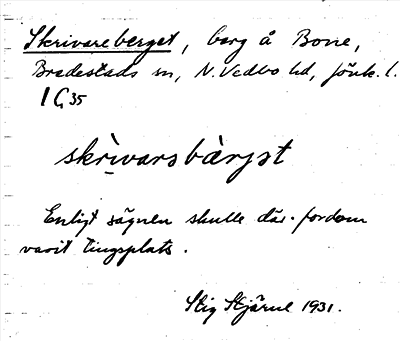 Skrivareberget, berg å Bone,
Bredestads sn, N. Vedbo hd, Jönk. l.
1 G 35
skrìvarsbàrjət
Enligt sägnen skulle där fordom
varit tingsplats.
Stig Stjärne 1931.